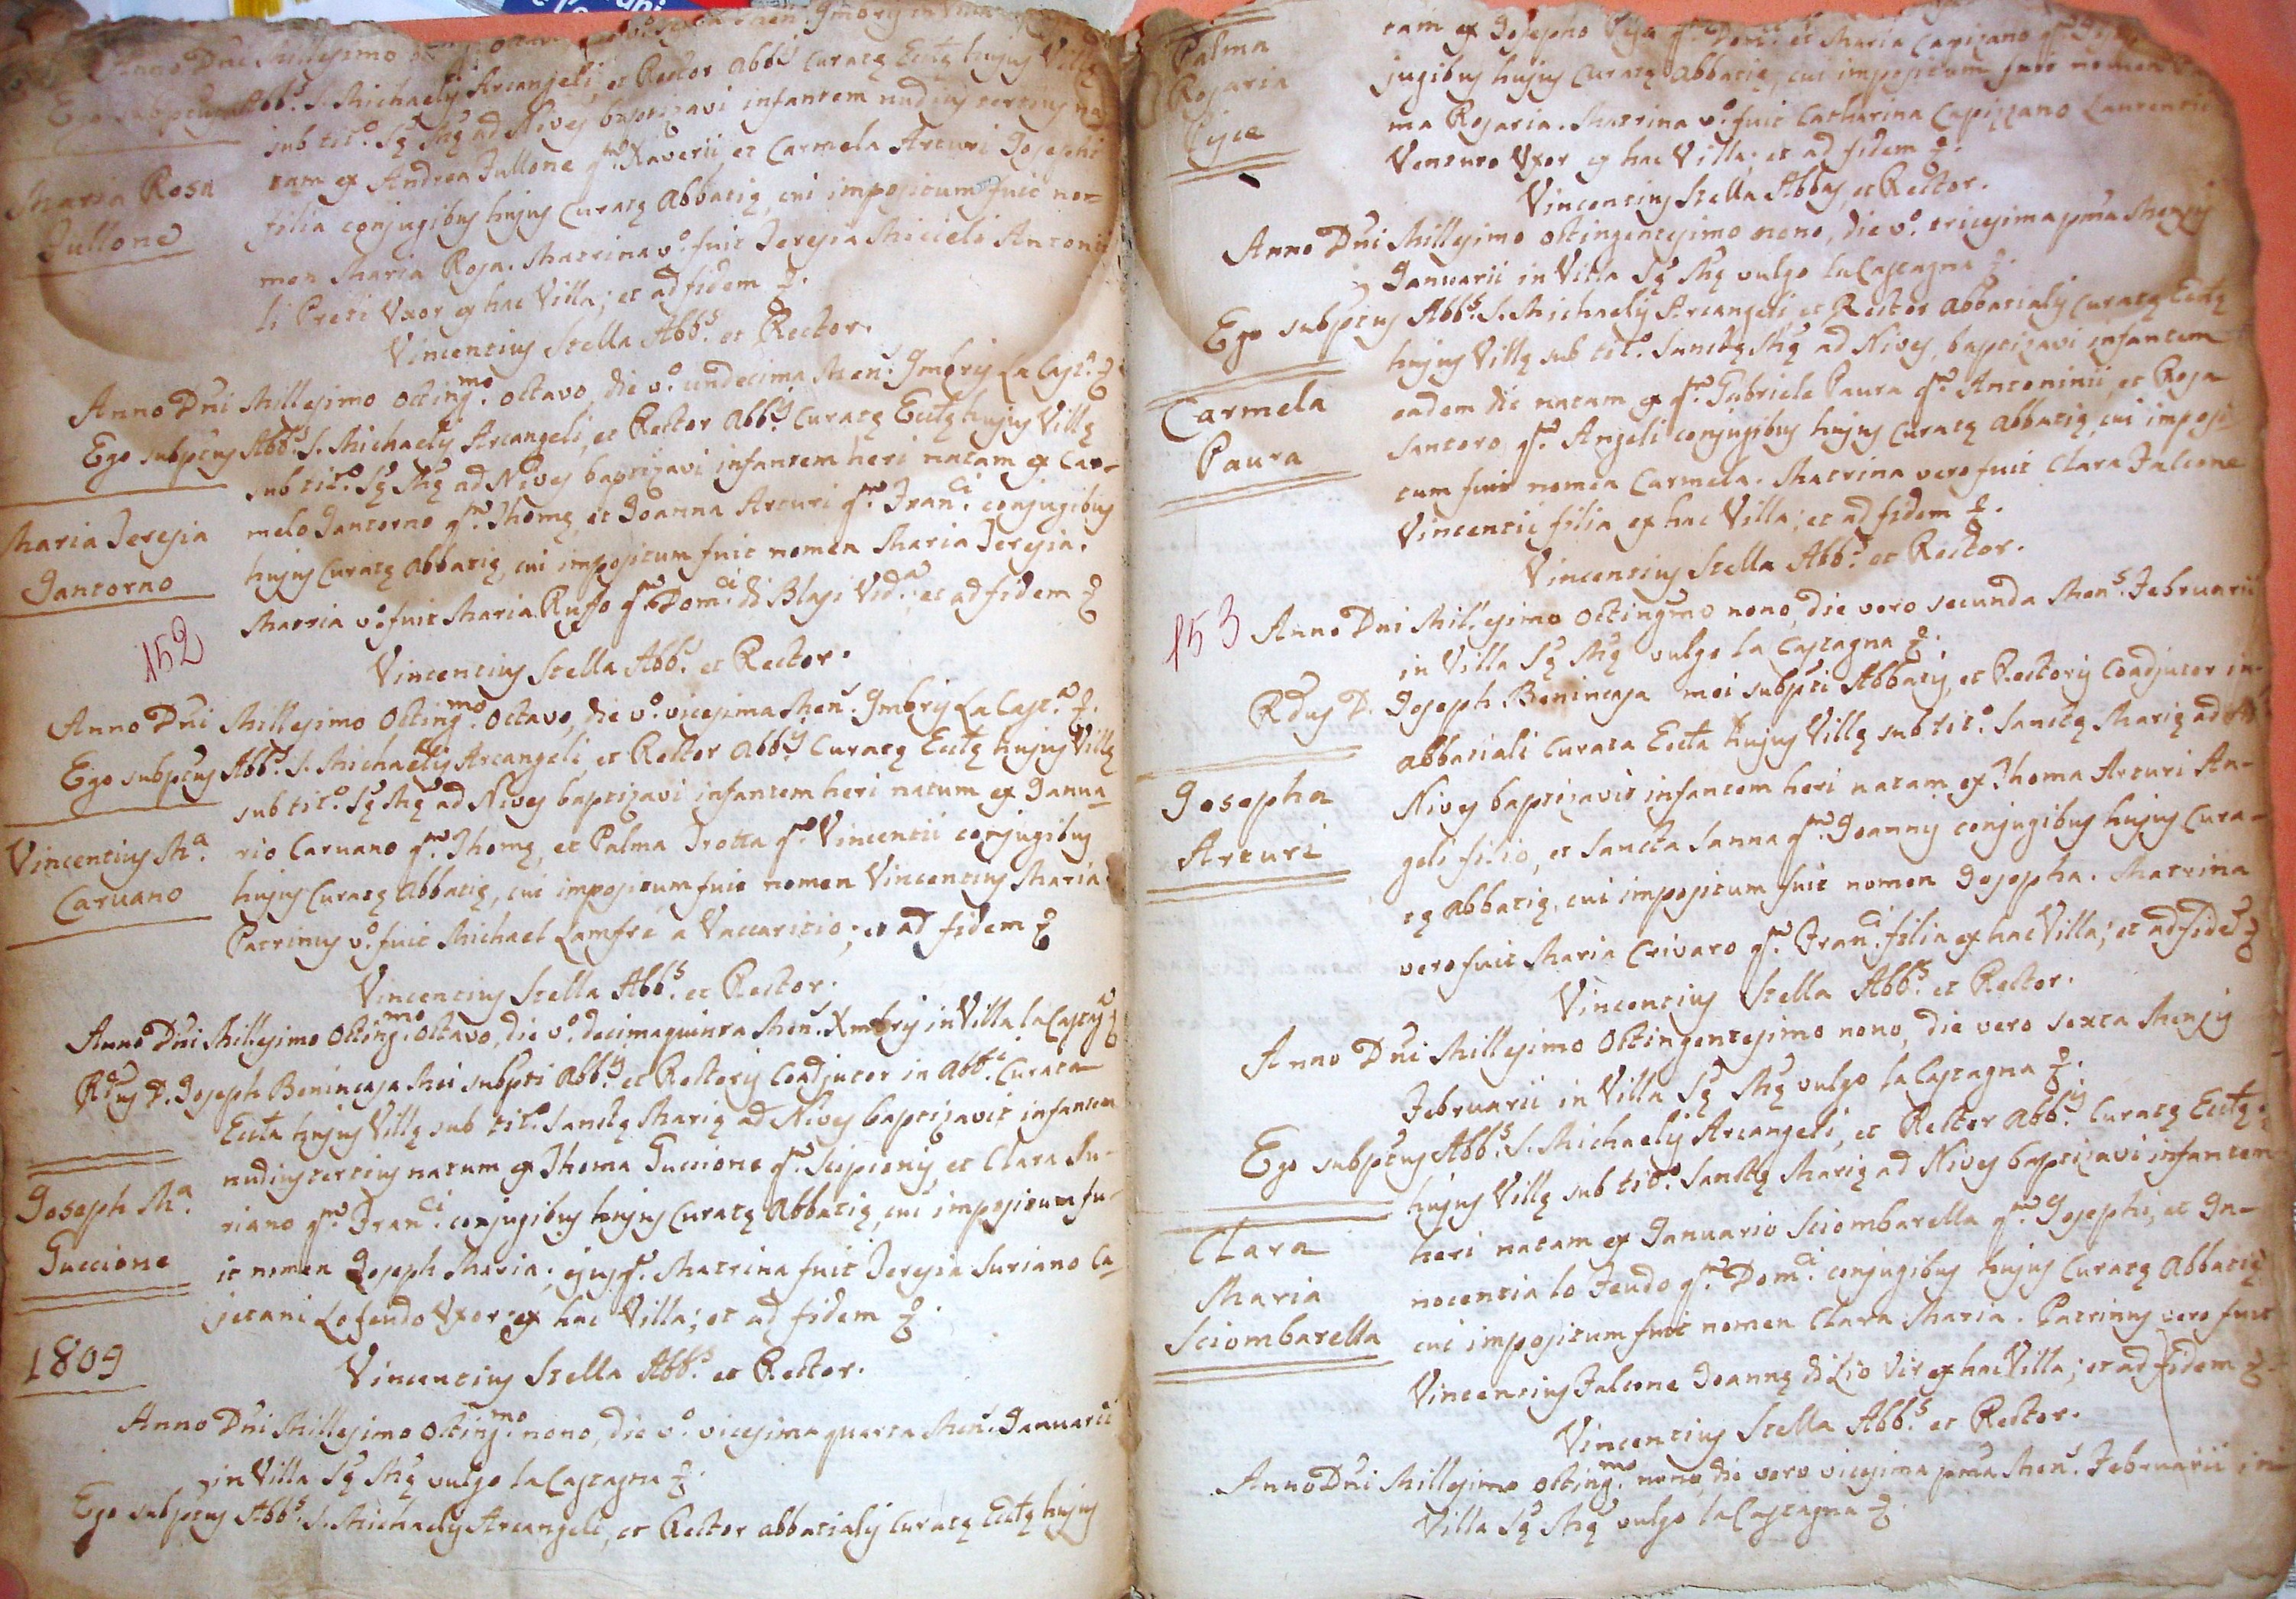 Anno Dni Millesimo
Ego subptus Abbs. S. Michaelis Arcangeli, et Rector Abblis Curatę Ecclę hujus Villę
sub titº. Sę Mę ad Nives baptizavi infantem nudius tertius na
Maria Rosa
Fullone
tam ex Andrea Fullone qm. Xaverii, et Carmela Arturi Josephi
filia conjugibus hujus Curatę Abbatię, cui impositum fuit no=
men Maria Rosa. Matrina vº. fuit Teresia Miceli Antonii
li Preti Uxor ex hac Villa; et ad fidem &.
Vincentius Stella Abbs. et Rector.
Anno Dni Millesimo Octing.mo octavo, die vº. undecima Mens. 9mbris La Cast.a &
Ego subptus Abbs. S. Michaelis Arcangeli, et Rector Abblis Curatę Ecclę hujus Villę
sub titº. Sę Mę ad Nives baptizavi infantem heri natam ex Car=
Maria Teresia
Jantorno
melo Jantorno qm. Thomę, et Joanna Arturi qm. Fran.ci conjugibus
hujus Curatę Abbatię, cui impositum fuit nomen Maria Teresia.
Matria vº. fuit Maria Ruffo qm. Dom.ci di Blasi Vid.a; et ad fidem &
Vincentius Stella Abbs. et Rector.
152
Anno Dni Millesimo Octing.mo Octavo, die vº. vicesima Mens. 9mbris La Cast.a &.
Ego subptus Abbs. S. Michaelis Arcangeli et Rector Abblis Curatę Ecclę hujus Villę
sub titº. Sę Mę ad Nives baptizavi infantem heri natum ex Janua
Vincentius M.a
Caruano
rio Caruano qm. Thomę, et Palma Trotta qm. Vincentii conjugibus
hujus Curatę Abbatię, cui impositum fuit nomen Vincentius Maria
Patrinus vº. fuit Michael Lamfre a Vaccaritio; et ad fidem &
Vincentius Stella Abbs. et Rector.
Anno Dni Millesimo Octing.mo Octavo, die vº. decimaquinta Mens. Xmbris in Villa la Castag.a &
Rdus D. Joseph Benincasa Mei subpti Abbis et Rectoris Coadjutor in Abb.li Curata
Eccla hujus Villę sub titº. Sanctę Marię ad Nives baptizavit infantem
nudiustertius natum ex Thoma Guccione qm. Scipionis, et Clara Su=
Joseph M.a
Guccione
riano qm. Fran.ci conjugibus hujus Curatę Abbatię, cui impositum fu=
it nomen Joseph Maria; ejusq. Matrina fuit Teresia Suriano Ca
jetani Lofeudo Uxor ex hac Villa; et ad fidem &.
Vincentius Stella Abbs. et Rector.
1809
Anno Dni Millesimo Octing.mo nono, die vº. vicesima quarta Mens. Januarii
in Villa Sę Mę vulgo la Castagna &.
Ego subptus Abbs. S. Michaelis Arcangeli, et Rector abbatialis Curatę Ecclę hujus
Palma
Rosaria
Pijce
tam ex Josepho qm. Dom.ci et Maria Capizano qm.
jugibus hujus Curatę Abbatię, cui impositum fuit nomen
ma Rosaria. Matrina vº. fuit Catharina Capizzano Laurentii
Venturo Uxor ex hac Villa; et ad fidem &.
Vincentius Stella Abbas, et Rector.
Anno Dni Millesimo Octingentesimo nono, die vº. tricesima pma Mensis
Januarii in Villa Sę Mę vulgo la Castagna &.
Ego subptus Abbs. S. Michaelis Arcangeli et Rector abbatialis Curatę Ecclę
hujus Villę sub titº. Sanctę Mę ad Nives, baptizavi infantem
Carmela
Paura
eadem die natam ex qm. Gabriele Paura qm. Antoninii, et Rosa
Santoro qm. Angeli conjugibus hujus Curatę Abbatię, cui imposi
tum fuit nomen Carmela. Matrina vero fuit Clara Falcone
Vincentii filia ex hac Villa; et ad fidem &.
Vincentius Stella Abbs. et Rector.
153
Anno Dni Millesimo Octingmo nono, die vero secunda Mens. Februarii
in Villa Sę Mę vulgo la Castagna &.
Rdus D. Joseph Benincasa mei subpti Abbatis, et Rectoris Coadjutor in
abbatiali Curata Eccla hujus Villę sub titº. Sanctę Marię ad
Josepha
Arturi
Nives baptizavit infantem heri natam ex Thoma Arturi An=
geli filio, et Sancta Sanna qm. Joannis conjugibus hujus Cura=
tę Abbatię, cui impositum fuit nomen Josepha. Matrina
vero fuit Maria Crivaro qm. Fran.ci filia ex hac Villa; et ad fide &
Vincentius Stella Abbs. et Rector.
Anno Dni Millesimo Octingentesimo nono, die vero sexta Mensis
Februarii in Villa Sę Mę vulgo la Castagna &.
Ego subptus Abbs. S. Michaelis Arcangeli, et Rector Abblis Curatę Ecclę
hujus Villę sub titº. Sanctę Marię ad Nives baptizavi infantem
Clara
Maria
Sciombarella
heri natam ex Januario Sciombarella qm. Josephi, et In=
nocentia lo Feudo qm. Dom.ci conjugibus hujus Curatę Abbatię
cui impositum fuit nomen Clara Maria. Patrinus vero fuit
Vincentius Falcone Joannę di Lio Vir ex hac Villa; et ad fidem &.
Vincentius Stella Abbs. et Rector.
Anno Dni Millesimo Octing.mo nono, die vero vicesima pma Mens. Februarii in
Villa Sę Mę vulgo la Castagna &.